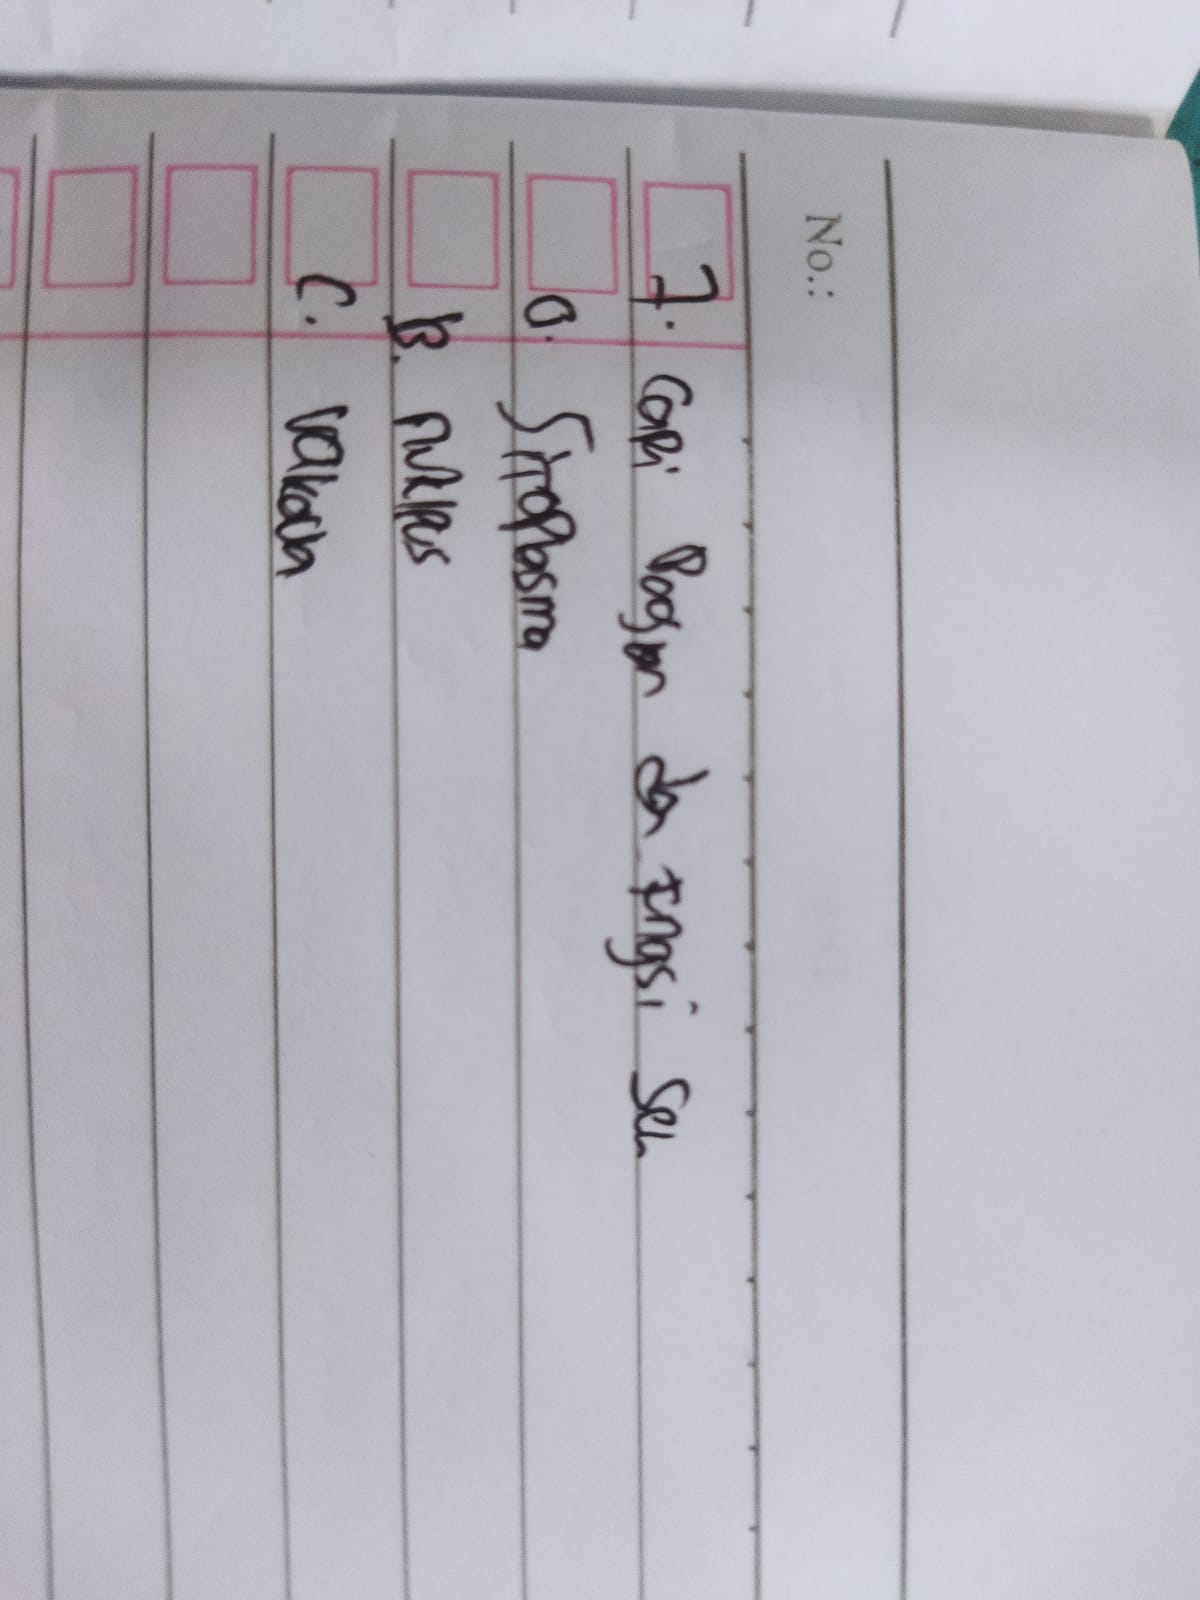 No.:
7. Cari Bagian dan Fungsi Sel
a. Sitoplasma
B. Nukleus
C. Vakoula